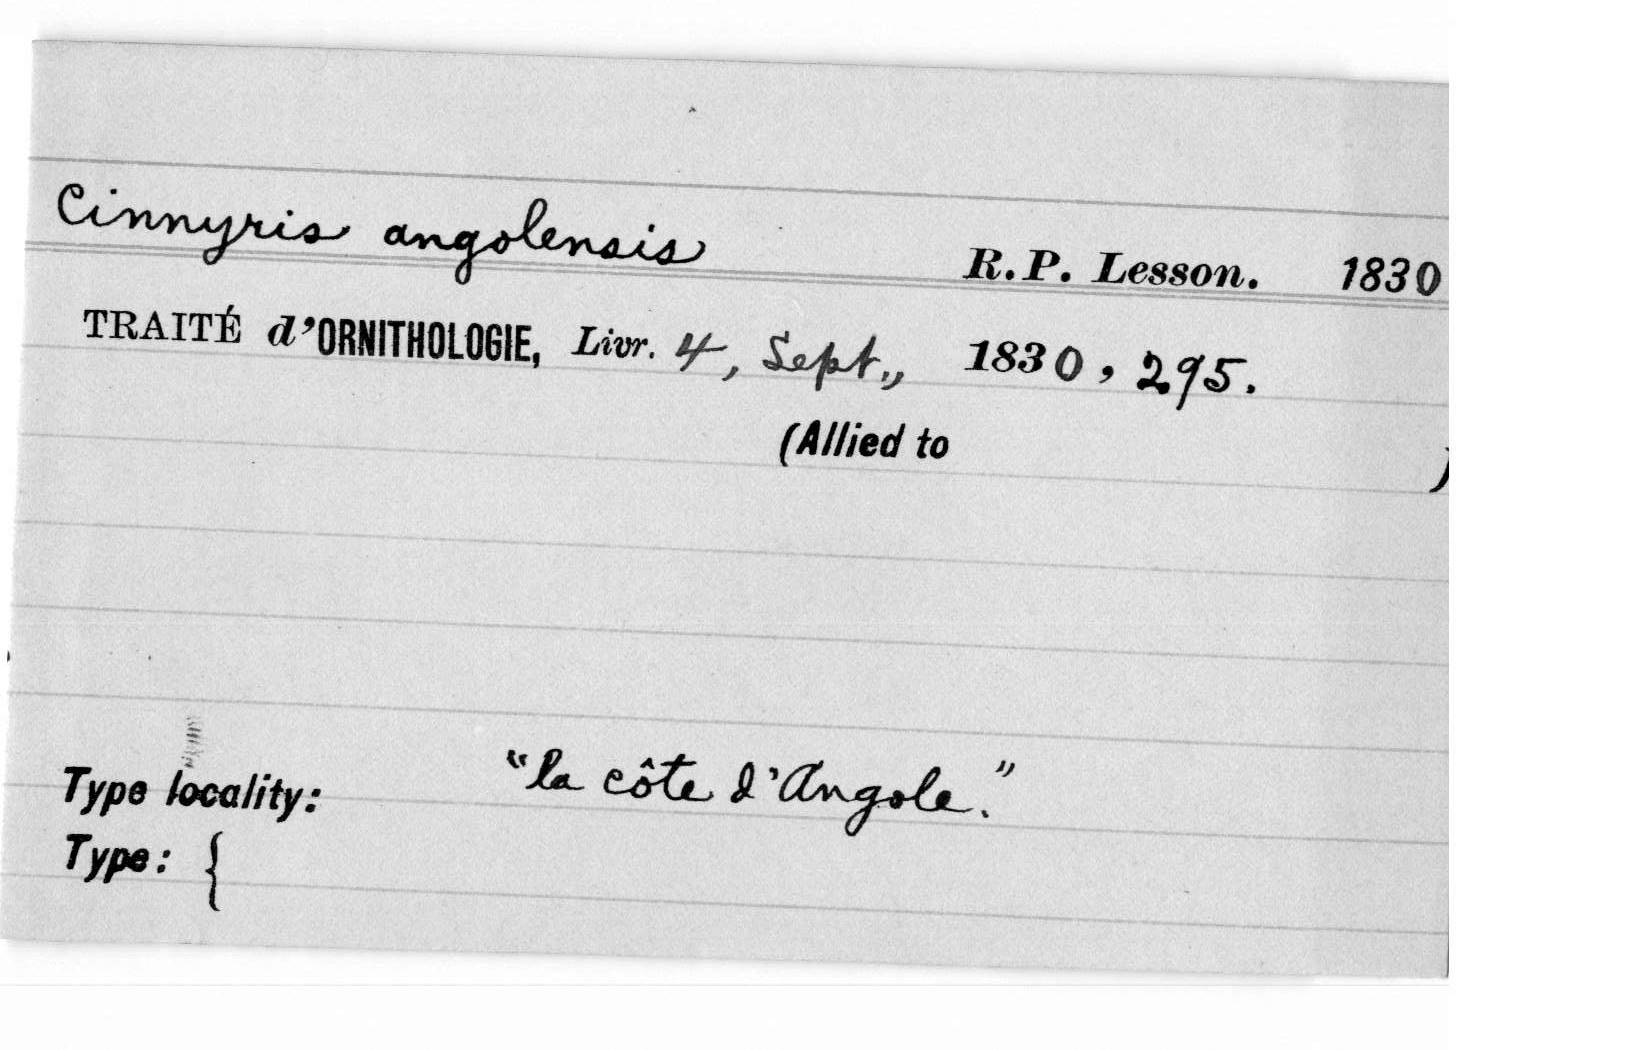 Cinnyris angolensis R.P. Lesson. 1830
TRAITÉ d'ORNITHOLOGIE, Livr. 4, Sept., 1830, 295.
(Allied to )
Type locality: "la côte d'Angole."
Type: {